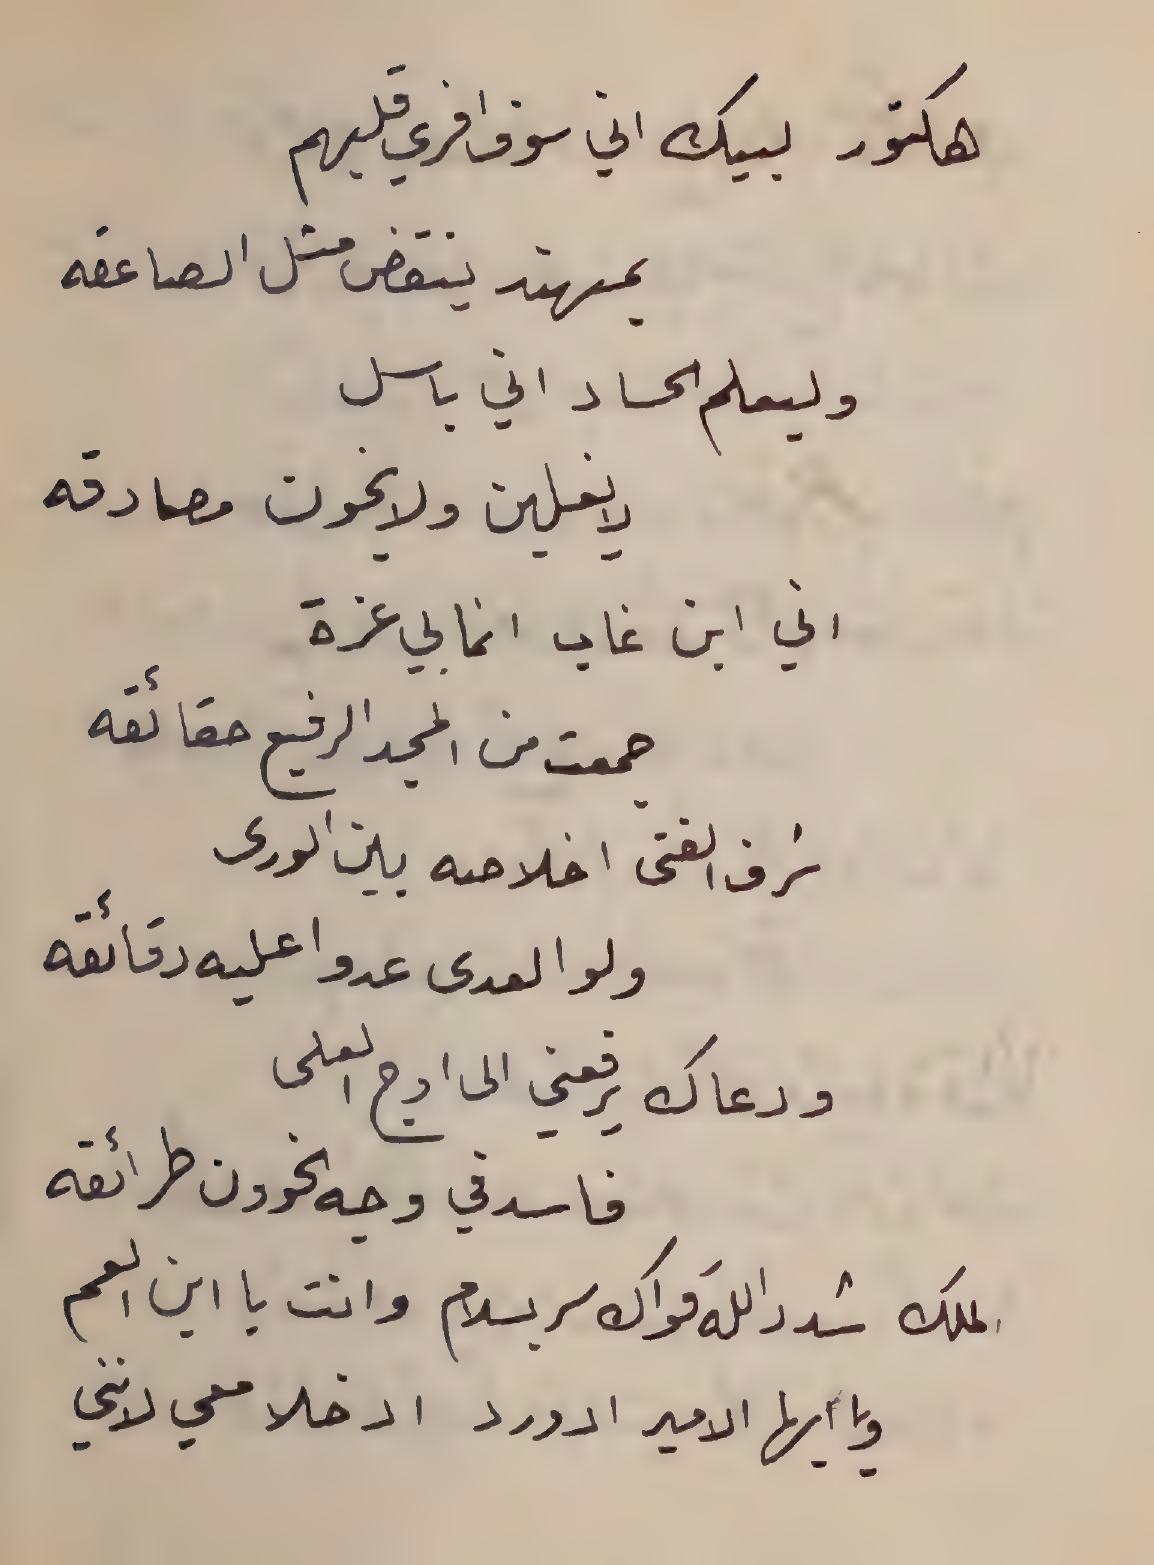 هكتور لبيك اني سوف افري قلبهم
بمهند ينقض مثل الصاعقه
وليعلم الحساد اني باسل
لا يلين ولا يخون مصادقه
اني ابن غاب انما لي عزة
جمعت من المجد الرفيع حقائقه
شرف الفتى اخلاصه بين الورى
ولو العدى عدوا عليه دقائقه
ودعاك يرفعني الى اوج العلى
فاسد في وجه الخوون طرائقه
الملك شدد الله قواك سر بسلام وانت يا ابن العم
ويا أيها الامير ادورد ادخلا معي لانني